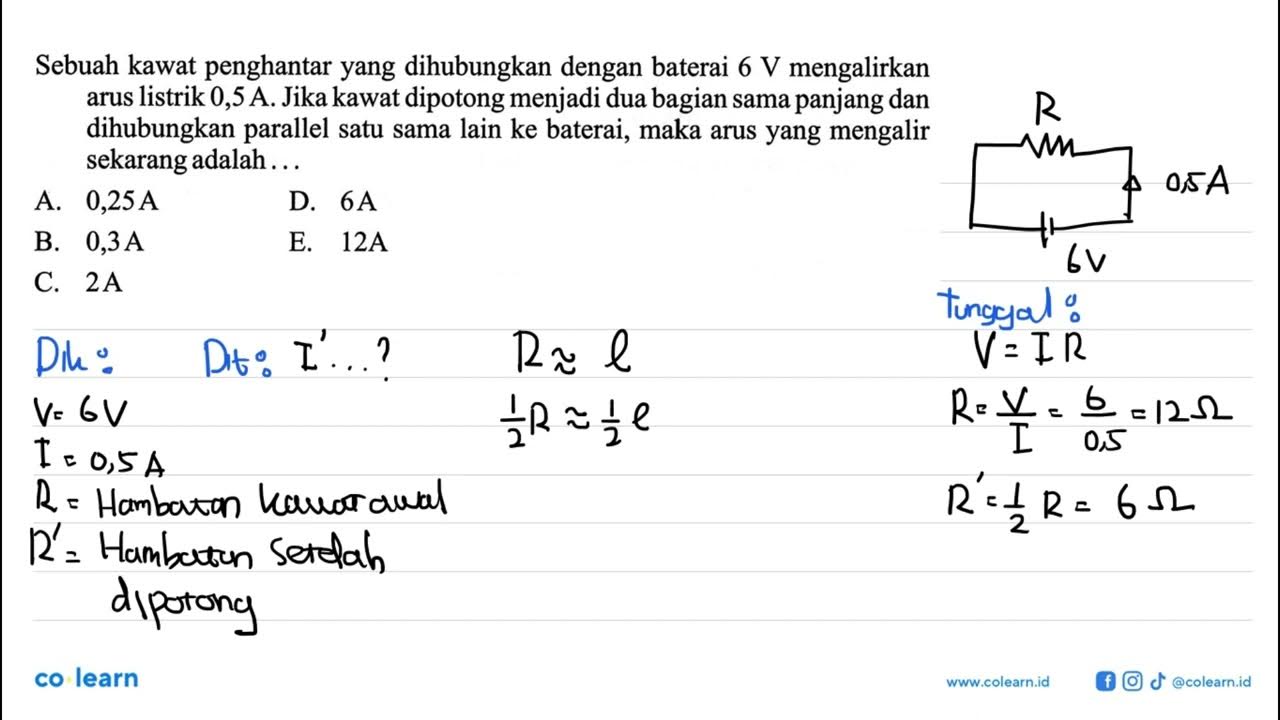 Sebuah kawat penghantar yang dihubungkan dengan baterai 6 V mengalirkan
arus listrik 0,5 A. Jika kawat dipotong menjadi dua bagian sama panjang dan
dihubungkan parallel satu sama lain ke baterai, maka arus yang mengalir
sekarang adalah . . .
A. 0,25 A D. 6 A
B. 0,3 A E. 12A
C. 2 A
R
0,5 A
6V
Dik:
Dit: I' ...?
V= 6V
I = 0,5 A
R = Hambatan kawat awal
R' = Hambatan setelah
dipotong
R ≈ l
1/2 R ≈ 1/2 l
Tunggal:
V = I R
R = V/I = 6/0,5 = 12 Ω
R' = 1/2 R = 6 Ω
co learn
www.colearn.id
@colearn.id